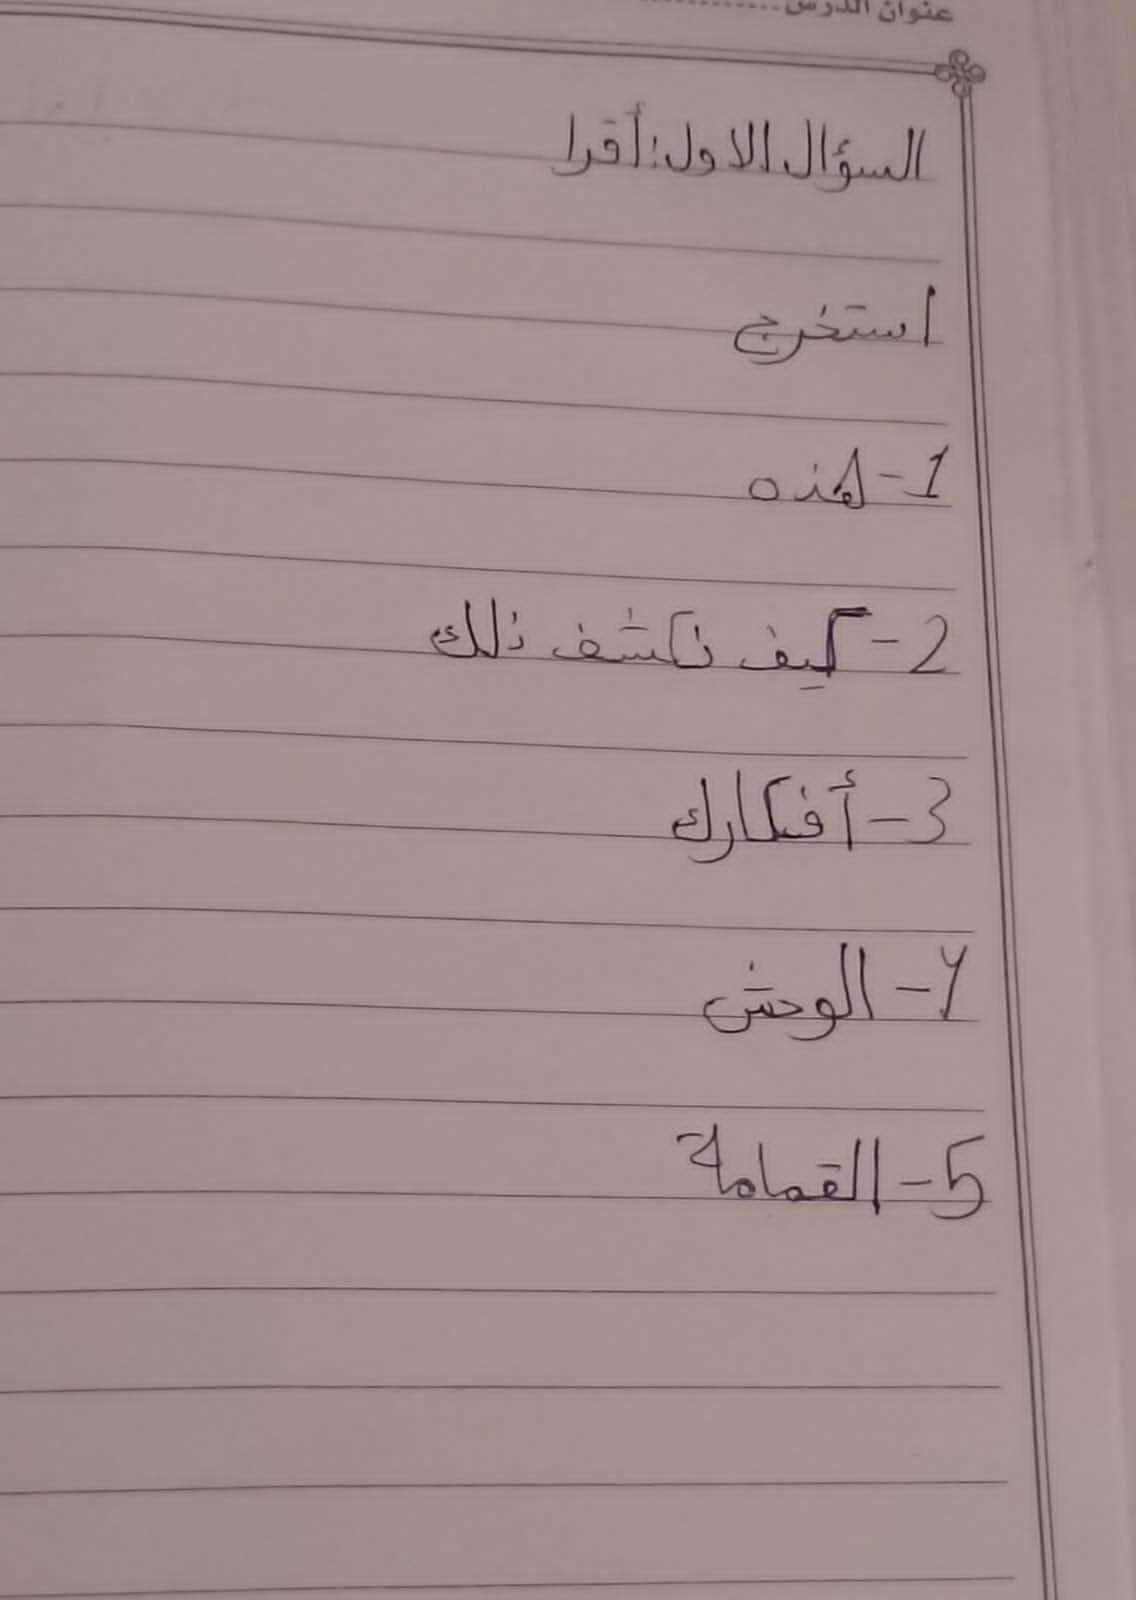 عنوان الدرس
السؤال الاول: أقرا
استخرج
1- هذه
2- كيف نكشف ذلك
3- أفكارك
4- الوحش
5- القمامة